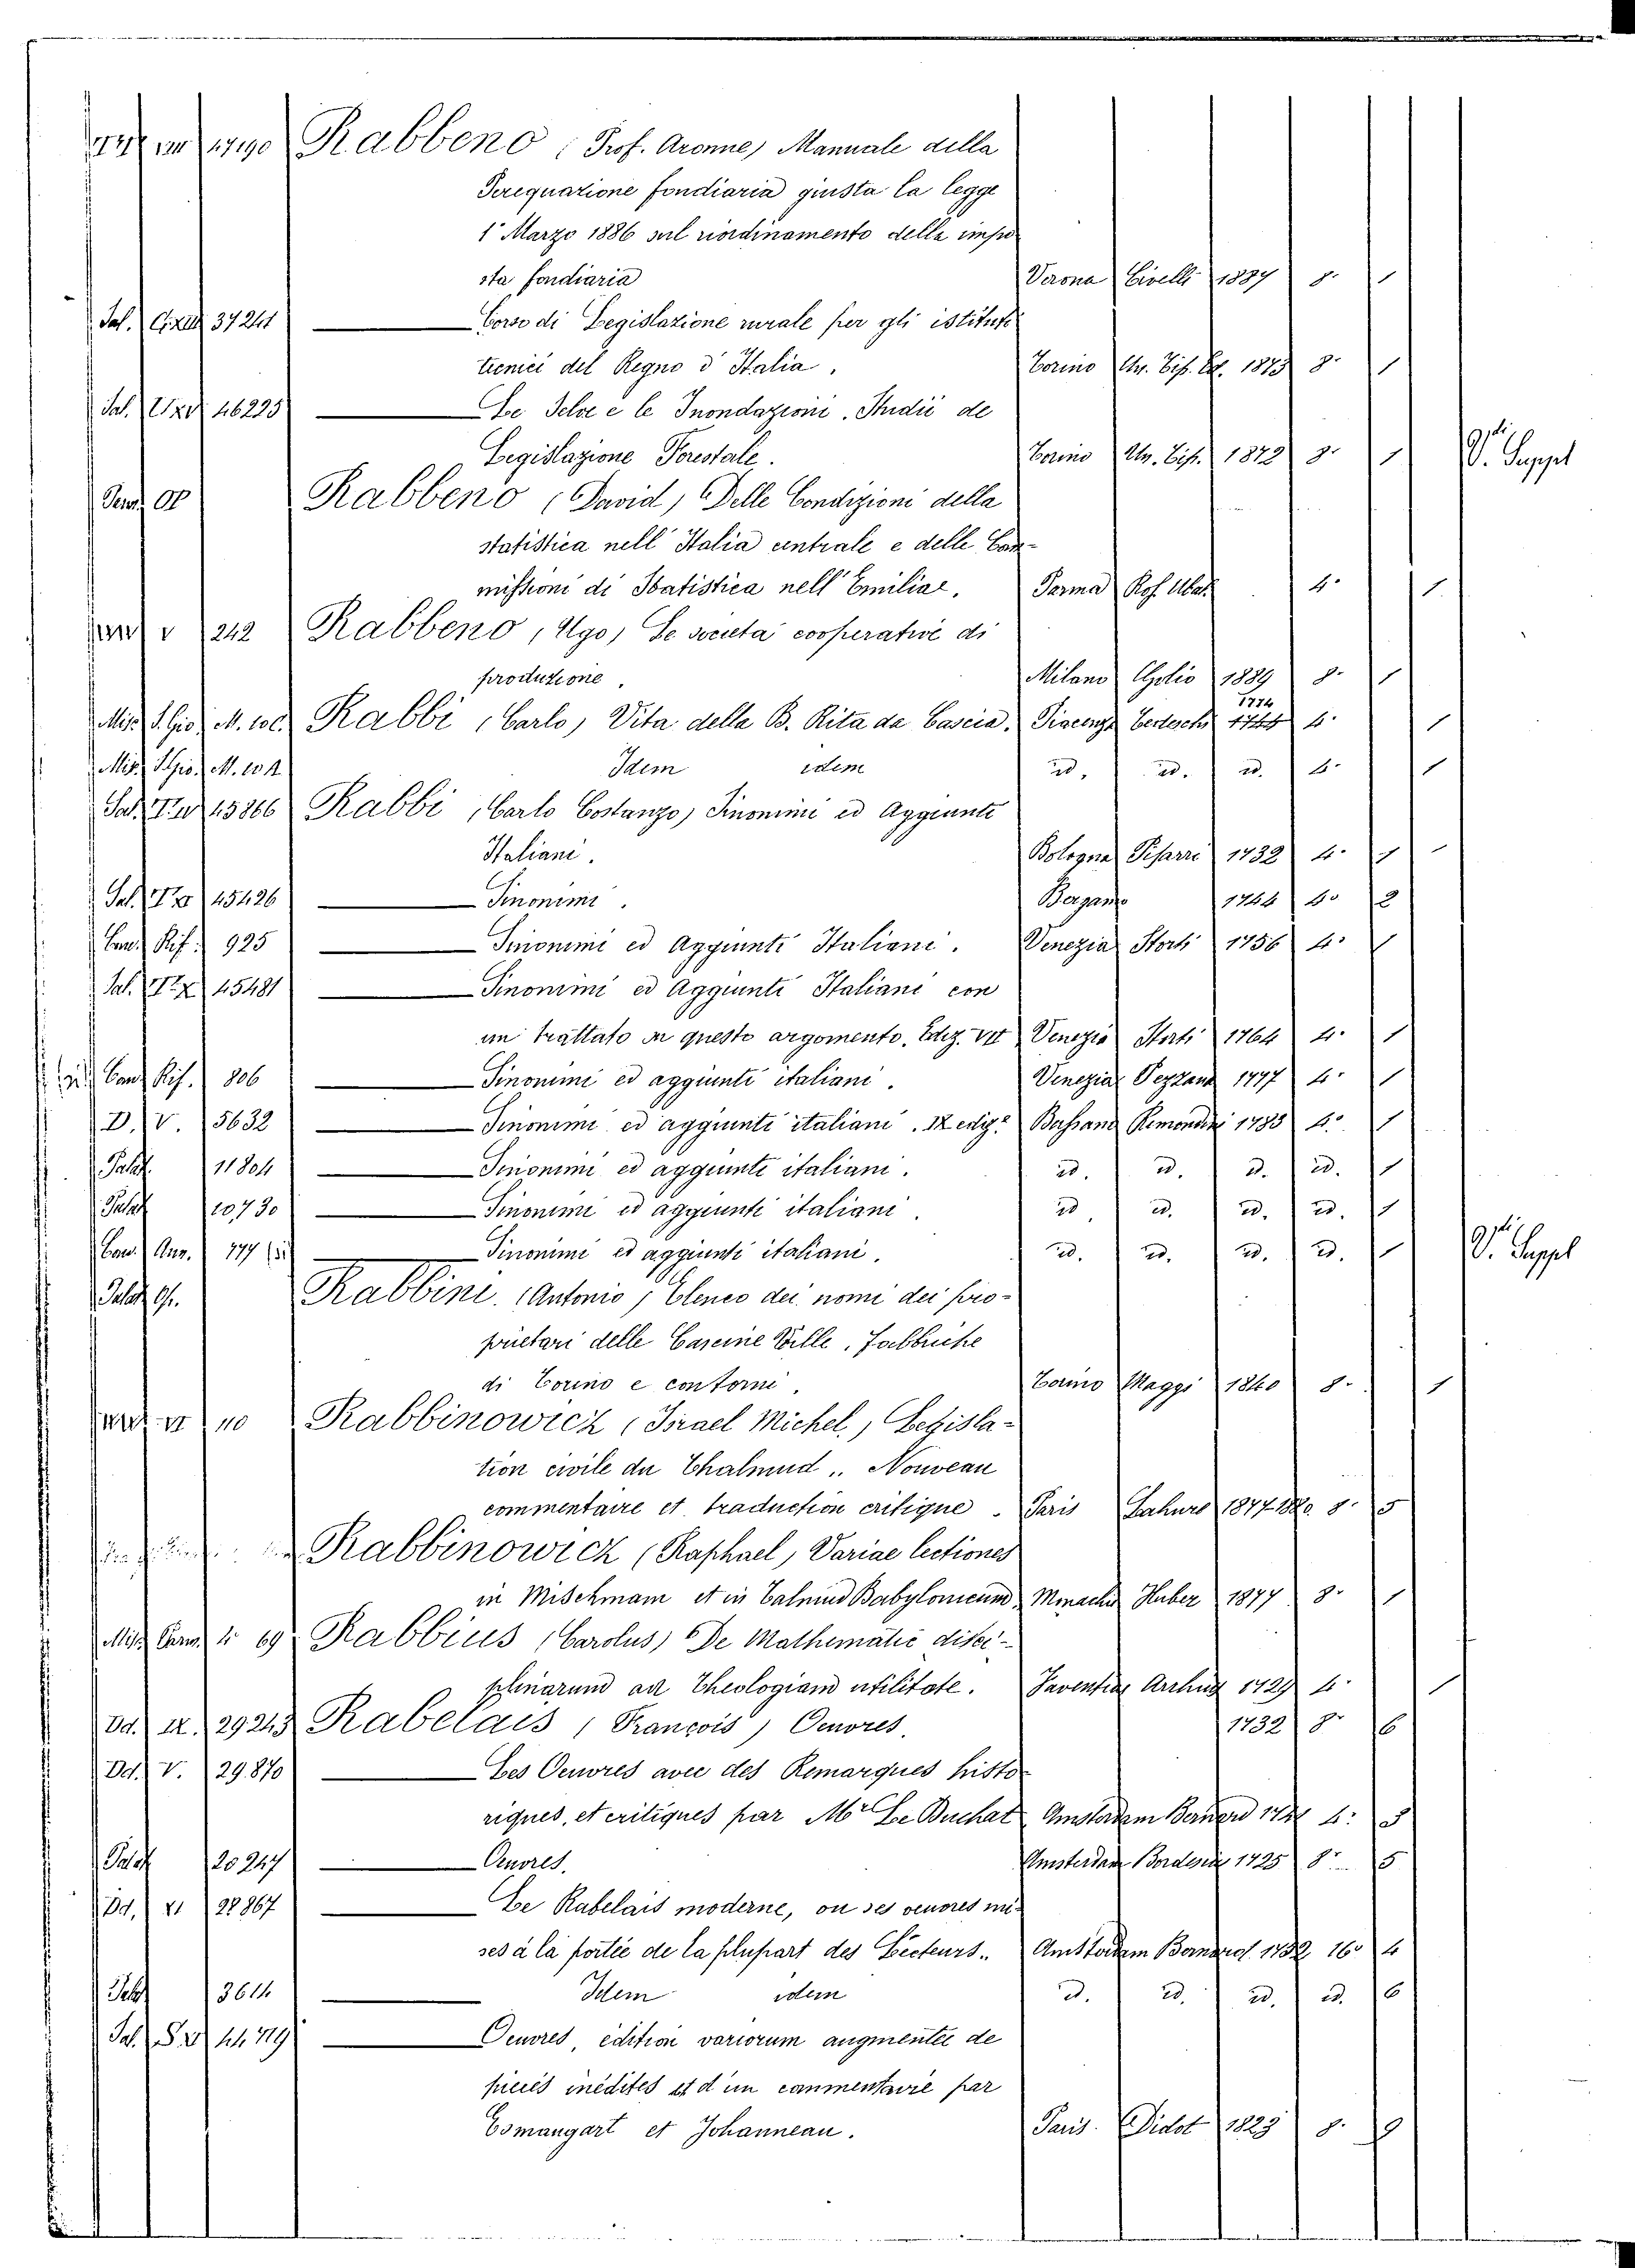 Rabbeno (Prof. Aronne) Manuale della
Perequazione fondiaria giusta la legge
1° Marzo 1886 sul riordinamento della impo
sta fondiaria Verona Civelli 1887 8° 1
Sal. 37241 Corso di Legislazione rurale per gli istituti
tecnici del Regno d'Italia. Torino Un. Tip. Ed. 1875 8° 1
Sal. 46225 Le Selve e le Inondazioni. Studii de
Legislazione Forestale. Torino Un. Tip. 1872 8° 1 V. Suppl
Rabbeno (David) Delle Condizioni della
statistica nell'Italia centrale e delle Com-
missioni di Statistica nell'Emilia. Parma 4° 1
V 242 Rabbeno (Ugo) Le società cooperative di
produzione. Milano Golio 1889 8° 1
1774
Mis. S. Gio. M. 100 Rabbi (Carlo) Vita della B. Rita da Cascia. Piacenza 4° 1
Mis. S. Gio. M. 101 Idem idem id. id. id. 4° 1
Sal. 45866 Rabbi (Carlo Costanzo) Sinonimi ed Aggiunti
Italiani. Bologna Pisarri 1732 4° 1
Sal. 45426 Sinonimi. Bergamo 1744 4° 2
Rif. 925 Sinonimi ed Aggiunti Italiani. Venezia Storti 1756 4° 1
Sal. 45481 Sinonimi ed Aggiunti Italiani con
un trattato in questo argomento. Ediz. VII Venezia Storti 1764 4° 1
Rif. 806 Sinonimi ed aggiunti italiani. Venezia Pezzana 1777 4° 1
D. V. 5632 Sinonimi ed aggiunti italiani. IX ediz.e Bassano Remondini 1783 4° 1
Palat. 11804 Sinonimi ed aggiunti italiani. id. id. id. id. 1
Palat. 10,730 Sinonimi ed aggiunti italiani. id. id. id. id. 1
Ann. 177 Sinonimi ed aggiunti italiani. id. id. id. id. 1 V. Suppl
Palat. Rabbini. (Antonio) Elenco dei nomi dei pro-
prietari delle Cascine Ville, Fabbriche
di Torino e contorni. Torino Maggi 1840 8° 1
VI 110 Rabbinowicz (Israel Michel.) Legisla-
tion civile du Thalmud. Nouveau
commentaire et traduction critique. Paris Lahure 1877-1880 8° 5
Rabbinowicz (Raphael) Variae lectiones
in Mischmam et in Talmud Babylonicum. Monachi Huber 1877 8° 1
Mis. 4 69 Rabbius (Carolus) De Mathematic disci-
plinarum ad Theologiam utilitate. Faventiae Archig 1729 4° 1
Dd. IX. 29243 Rabelais (François) Oeuvres. 1732 8° 6
Dd. V. 29.870 Les Oeuvres avec des Remarques histo
riques, et critiques par Mr Le Duchat Amsterdam Bernard 4° 3
Palat 20247 Oeuvres. Amsterdam Bordesius 1725 8° 5
Dd. VI 28867 Le Rabelais moderne, ou ses oeuvres mi-
ses à la portée de la plupart des Lecteurs. Amsterdam Bernard 1752 16° 4
3614 Idem idem id. id. id. id. 6
Sal. 44719 Oeuvres, edition variorum augmentée de
pièces inédites et d'un commentaire par
Esmangart et Johanneau. Paris. Didot 1823 8° 9